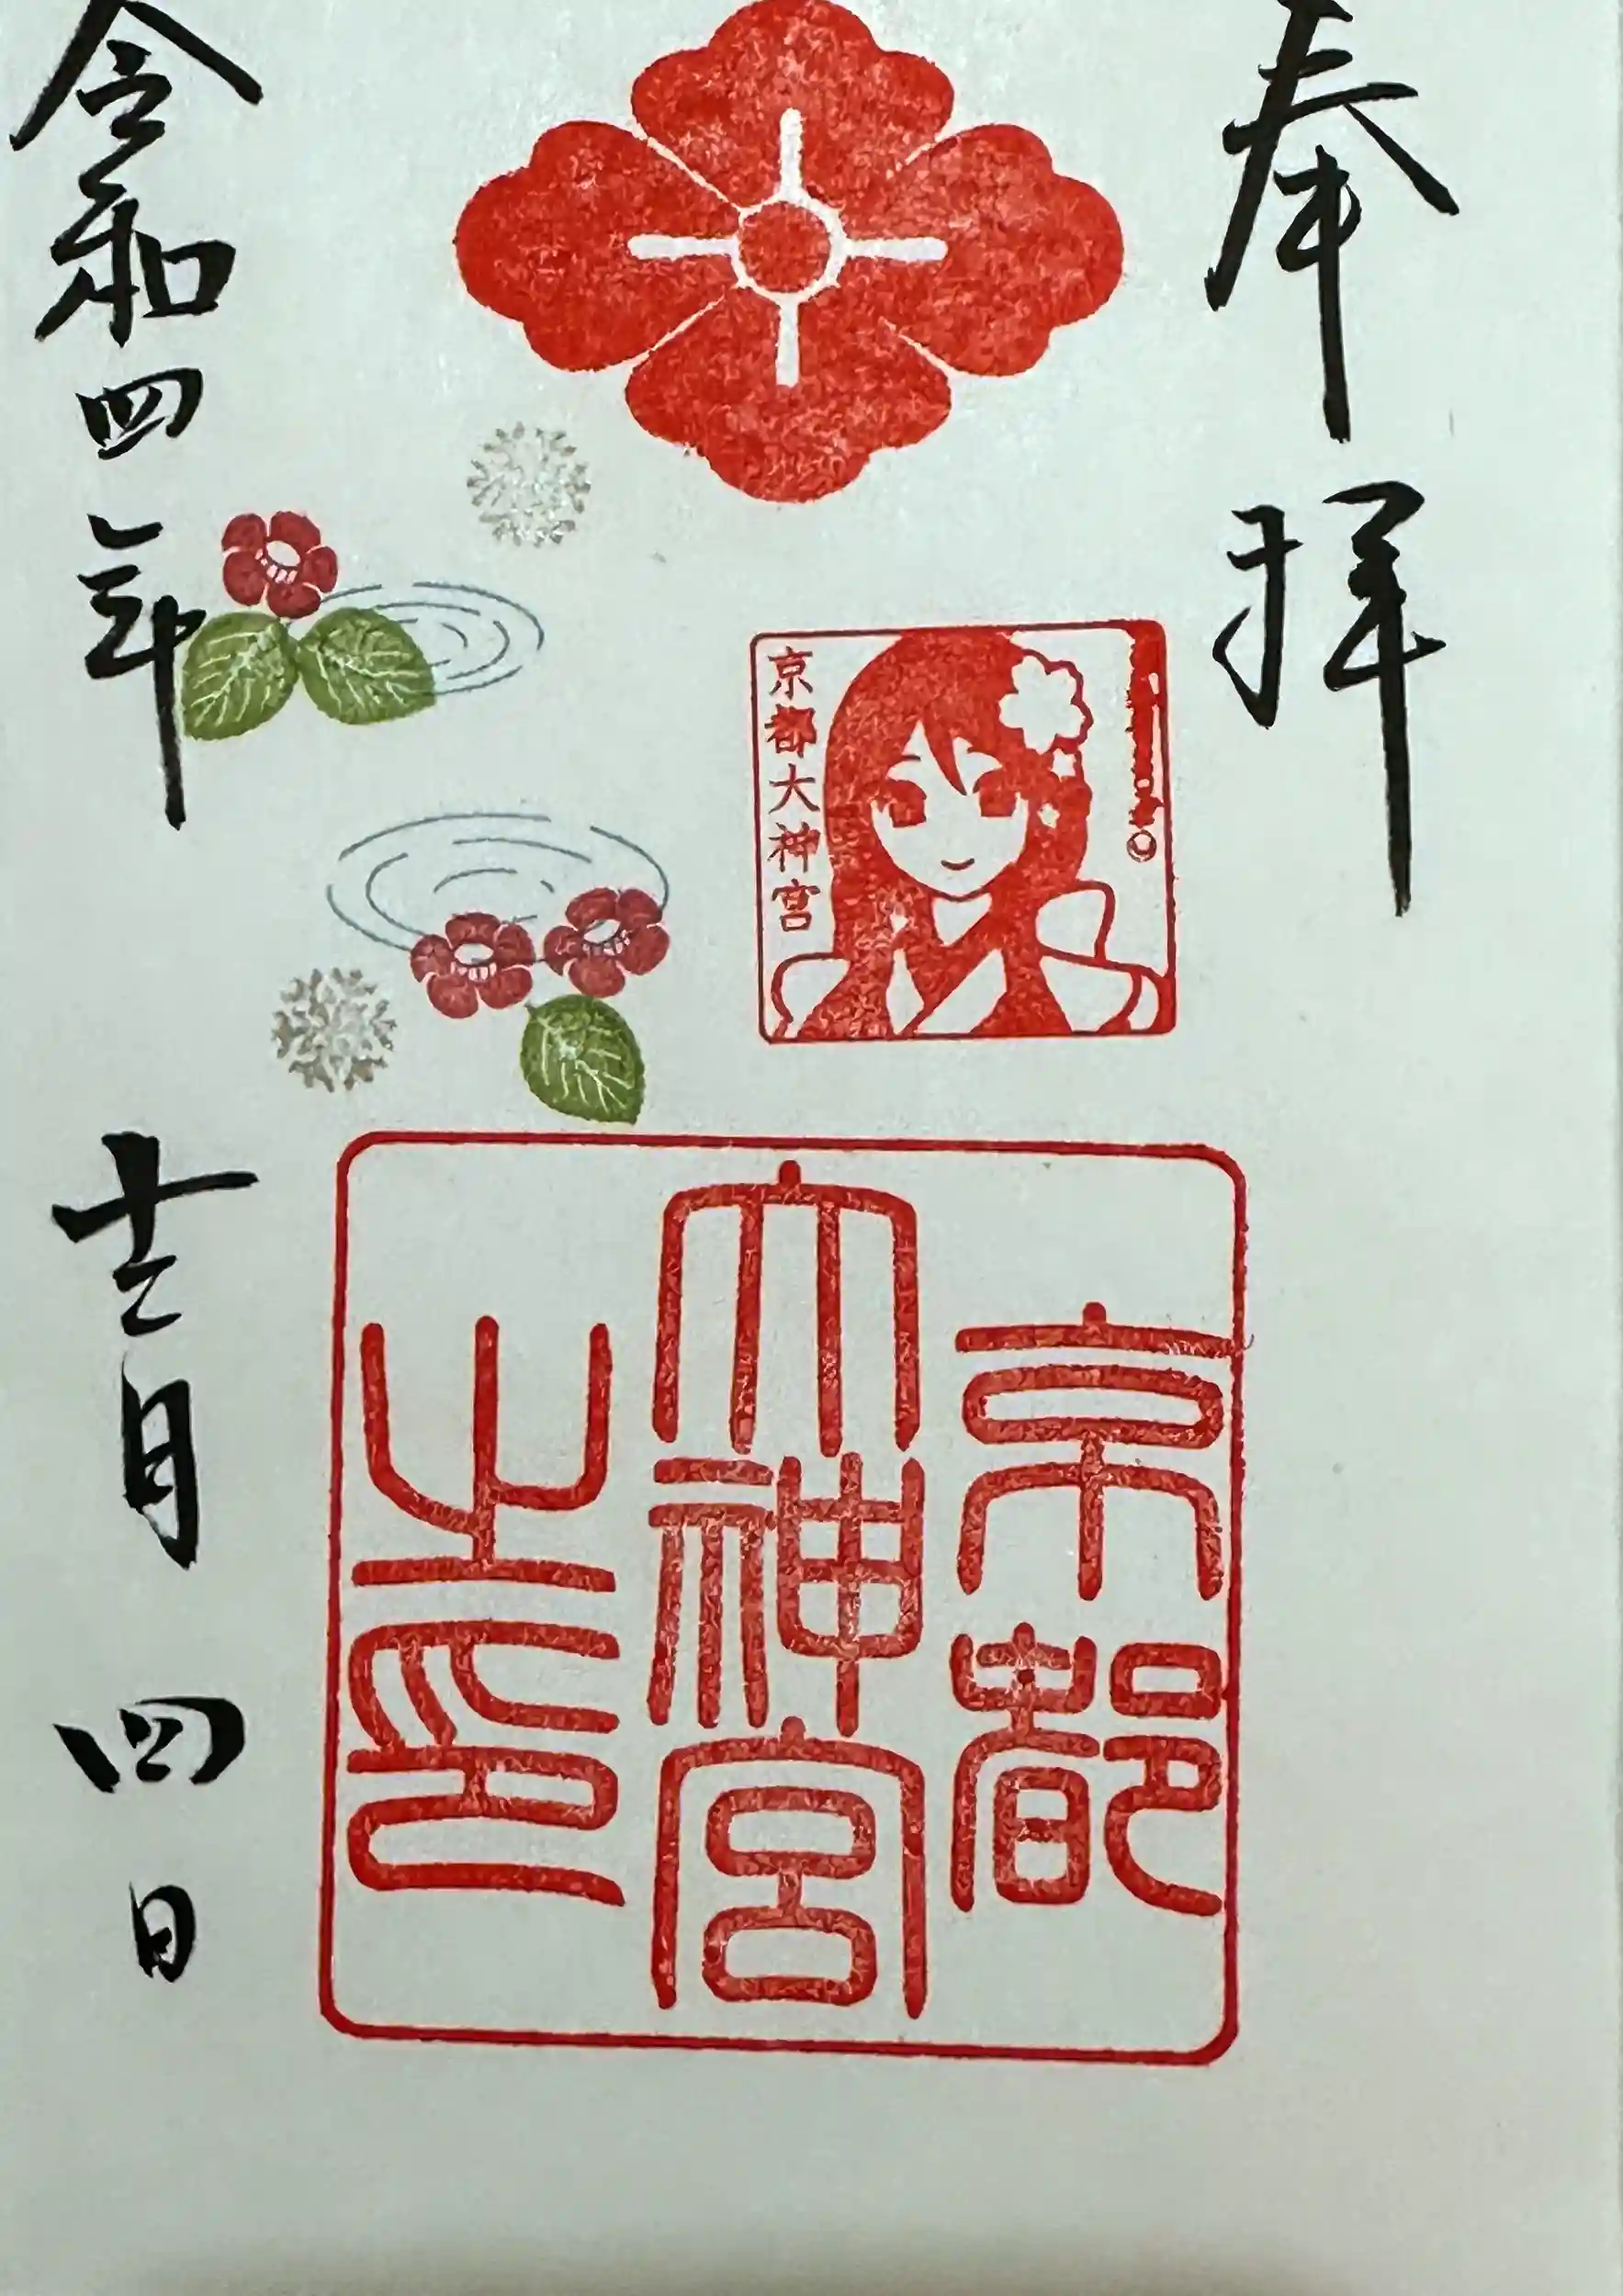 奉拝
京都大神宮
京都
大神宮
之印
令和四年十二月四日